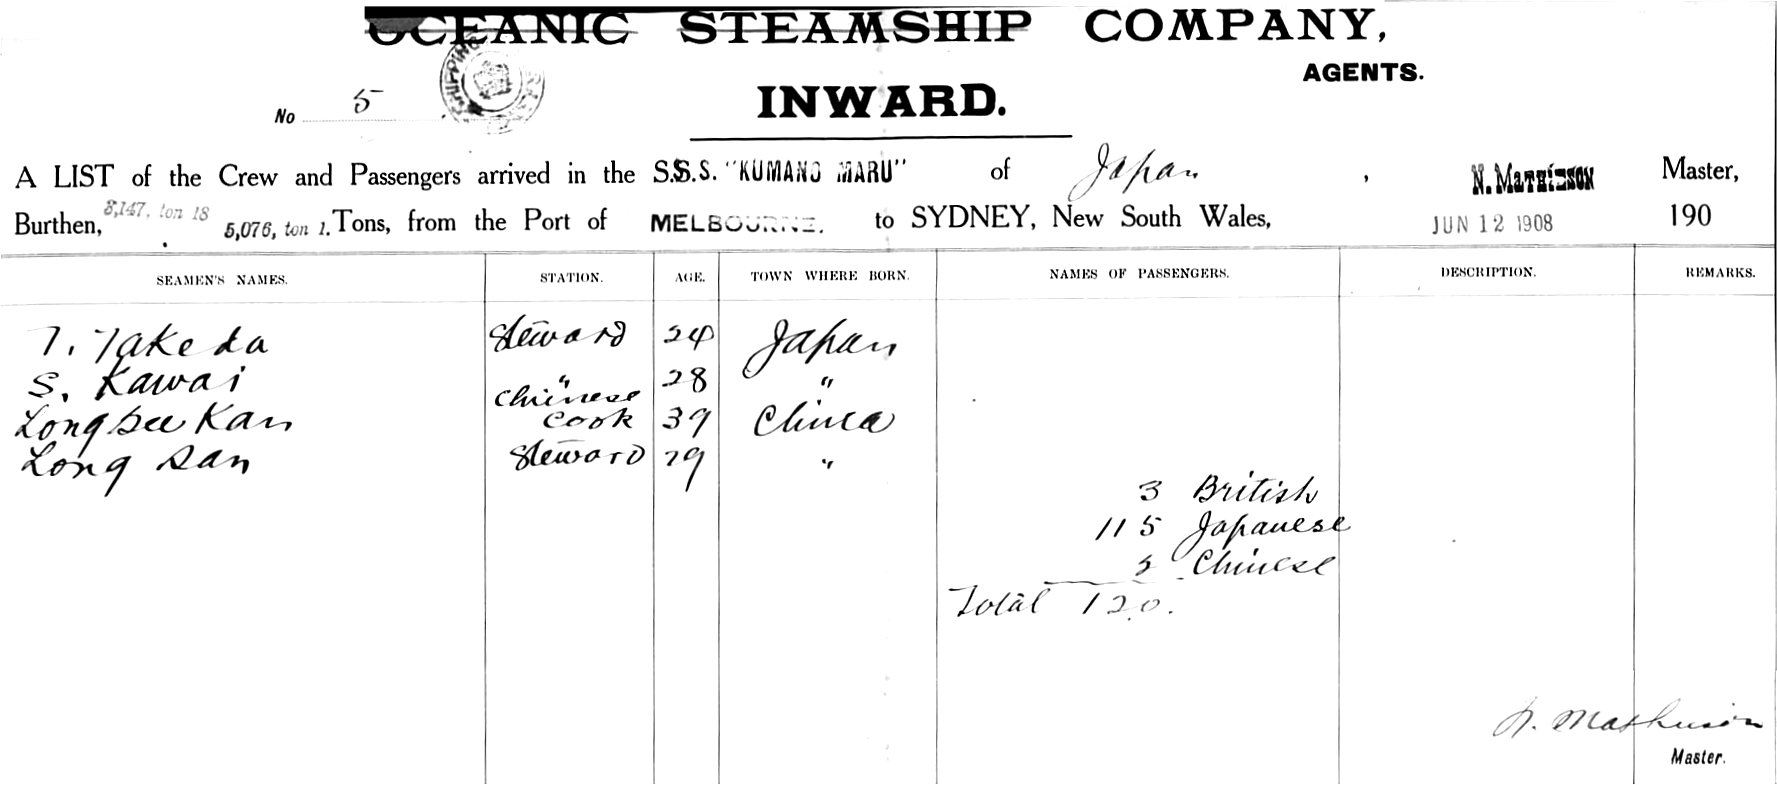 OCEANIC STEAMSHIP COMPANY,
AGENTS.
INWARD.
No 5
SHIPPING
A LIST of the Crew and Passengers arrived in the S.S.S. "KUMANO MARU" of Japan, N. MATHIESON Master,
Burthen, 3,147, ton 18 5,076, ton 1. Tons, from the Port of MELBOURNE. to SYDNEY, New South Wales, JUN 12 1908 190
SEAMEN'S NAMES. STATION. AGE. TOWN WHERE BORN. NAMES OF PASSENGERS. DESCRIPTION. REMARKS.
T. Takeda Steward 24 Japan
S. Kawai " 28 "
Long See Kan Chinese Cook 39 China
Long San Steward 29 "
3 British
115 Japanese
2 Chinese
Total 120.
N. Mathieson
Master.